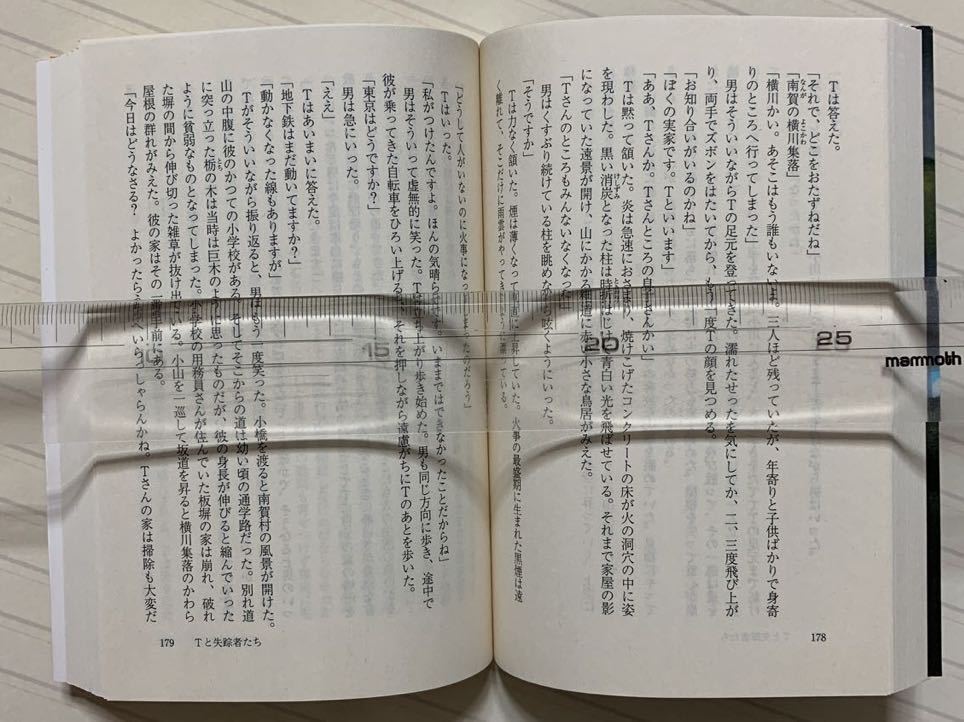 Tは答えた。
「それで、どこをおたずねだね」
「南賀の横川集落」
なんが
よこかわ
「横川かい。あそこはもう誰もいないよ。三人ほど残っていたが、年寄りと子供ばかりで身寄
りのところへ行ってしまった」
男はそういいながらTの足元を登ってきた。濡れたせったを気にしてか、二、三度飛び上が
り、両手でズボンをはたいてから、もう一度Tの顔を見つめる。
「お知り合いがいるのかね」
「ぼくの実家です。Tといいます」
「ああ、Tさんか。Tさんところの息子さんかい」
Tは黙って頷いた。炎は急速におさまり、焼けこげたコンクリートの床が火の洞穴の中に姿
を現わした。黒い消炭となった柱は時折はじけ、青白い光を飛ばせている。それまで家屋の影
けずみ
になっていた遠景が開け、山にかかる細道に赤い小さな鳥居がみえた。
「Tさんのところもみんないなくなった」
男はくすぶり続けている柱を眺めながら呟くようにいった。
「そうですか」
Tは力なく頷いた。煙は薄くなって垂直に上昇していた。火事の最盛期に生まれた黒煙は遠
く離れて、そこだけに雨雲がやってきたように漂っている。
178
「どうして人がいないのに火事になってしまったのだろう」
Tはいった。
「私がつけたんですよ。ほんの気晴らしです。いままではできなかったことだからね」
男はそういって虚無的に笑った。Tは立ち上がり歩き始めた。男も同じ方向に歩き、途中で
彼が乗ってきた自転車をひろい上げると、それを押しながら遠慮がちにTのあとを歩いた。
「東京はどうですか?」
男は急にいった。
「ええ」
Tはあいまいに答えた。
「地下鉄はまだ動いてますか?」
「動かなくなった線もありますが」
Tがそういいながら振り返ると、男はもう一度笑った。小橋を渡ると南賀村の風景が開けた。
山の中腹に彼のかつての小学校がある。そしてそこからの道は幼い頃の通学路だった。別れ道
に突っ立った栃の木は当時は巨木のように思ったものだが、彼の身長が伸びると縮んでいった
とち
ように貧弱なものとなってしまった。小学校の用務員さんが住んでいた板塀の家は崩れ、破れ
た塀の間から伸び切った雑草が抜け出ている。小山を一巡して坂道を昇ると横川集落のかわら
屋根の群れがみえた。彼の家はその一番手前にある。
「今日はどうなさる? よかったらうちへいらっしゃらんかね。Tさんの家は掃除も大変だ
179 Tと失踪者たち
10
15
20
25
mammoth